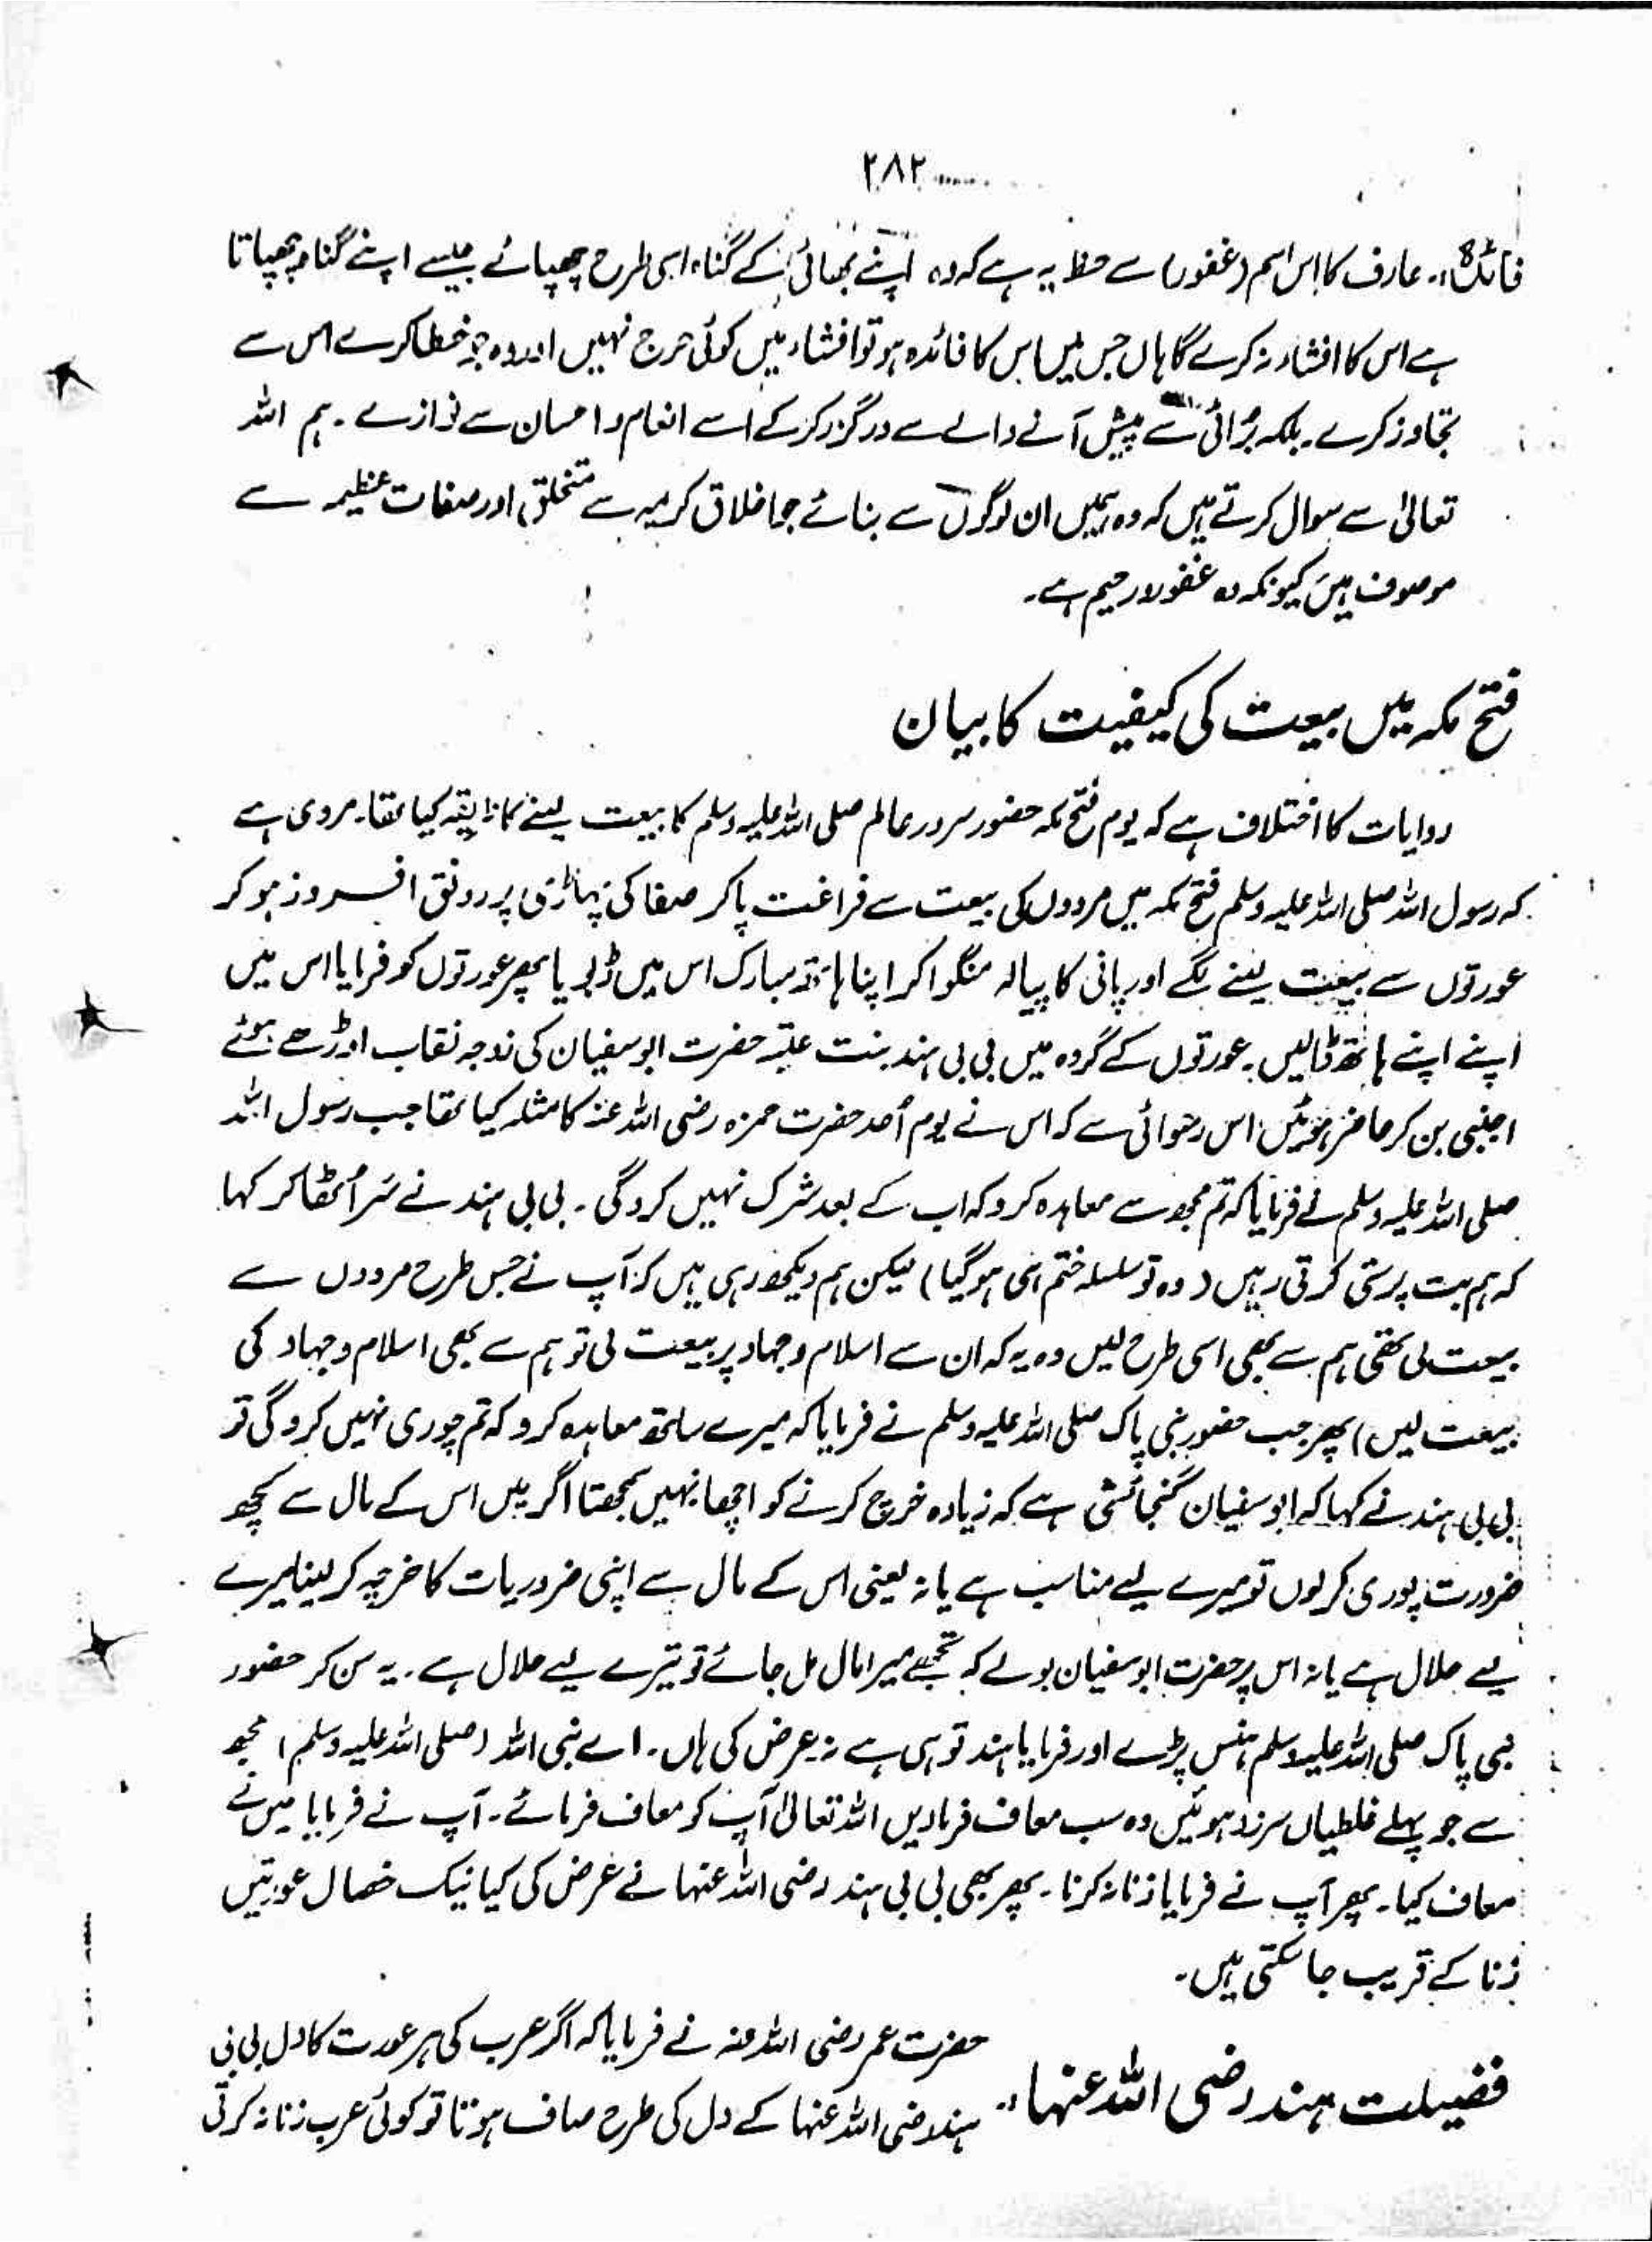 ۲۸۲
فائدہ:۔ عارف کا اس اسم (غفور) سے حظ یہ ہے کہ وہ اپنے بھائی کے گناہ اسی طرح چھپائے جیسے اپنے گناہ چھپاتا
ہے اس کا افشاء نہ کرے گا ہاں جس میں اس کا فائدہ ہو تو افشاء میں کوئی حرج نہیں اور وہ جو خطا کرے اس سے
تجاوز کرے۔ بلکہ برُائی سے پیش آنے والے سے درگزر کر کے اسے انعام و احسان سے نوازے ۔ ہم اللہ
تعالیٰ سے سوال کرتے ہیں کہ وہ ہمیں ان لوگوں سے بنائے جو اخلاق کریمہ سے متخلق اور صفات عظیمہ سے
موصوف ہیں کیونکہ وہ غفور رحیم ہے۔
فتح مکہ میں بیعت کی کیفیت کا بیان
روایات کا اختلاف ہے کہ یوم فتح مکہ حضور سرور عالم صلی اللہ علیہ وسلم کا بیعت لینے کا طریقہ کیا تھا۔ مروی ہے
کہ رسول اللہ صلی اللہ علیہ وسلم فتح مکہ میں مردوں کی بیعت سے فراغت پاکر صفا کی پہاڑی پر رونق افروز ہو کر
عورتوں سے بیعت لینے لگے اور پانی کا پیالہ منگوا کر اپنا ہاتھ مبارک اس میں ڈبو یا پھر عورتوں کو فرمایا اس میں
اپنے اپنے ہاتھ ڈالیں۔ عورتوں کے گروہ میں بی بی ہند بنت عتبہ حضرت ابوسفیان کی زوجہ نقاب اوڑھے ہوئے
اجنبی بن کر حاضر ہوئیں اس رسوائی سے کہ اس نے یوم اُحد حضرت حمزہ رضی اللہ عنہ کا مثلہ کیا تھا جب رسول اللہ
صلی اللہ علیہ وسلم نے فرمایا کہ تم مجھ سے معاہدہ کرو کہ اب کے بعد شرک نہیں کروگی ۔ بی بی ہند نے سَر اُٹھا کر کہا
کہ ہم بت پرستی کرتی رہیں (وہ تو سلسلہ ختم ہی ہوگیا) لیکن ہم دیکھ رہی ہیں کہ آپ نے جس طرح مردوں سے
بیعت لی تھی ہم سے بھی اسی طرح لیں وہ یہ کہ ان سے اسلام و جہاد پر بیعت لی تو ہم سے بھی اسلام و جہاد کی
بیعت لیں) پھر جب حضور نبی پاک صلی اللہ علیہ وسلم نے فرمایا کہ میرے ساتھ معاہدہ کرو کہ تم چوری نہیں کروگی تو
بی بی ہند نے کہا کہ ابو سفیان گنجائشی ہے کہ زیادہ خرچ کرنے کو اچھا نہیں سمجھتا اگر میں اس کے مال سے کچھ
ضرورت پوری کرلوں تو میرے لیے مناسب ہے یا نہ یعنی اس کے مال سے اپنی ضروریات کا خرچہ کر لینا میرے
لیے حلال ہے یا نہ اس پر حضرت ابوسفیان بولے کہ تجھے میرا مال مل جائے تو تیرے لیے حلال ہے ۔ یہ سن کر حضور
نبی پاک صلی اللہ علیہ وسلم ہنس پڑے اور فرمایا ہند تو ہی ہے نہ عرض کی ہاں۔ اے نبی اللہ (صلی اللہ علیہ وسلم) مجھ
سے جو پہلے غلطیاں سرزد ہوئیں وہ سب معاف فرمادیں اللہ تعالیٰ آپ کو معاف فرمائے۔ آپ نے فرمایا میں نے
معاف کیا۔ پھر آپ نے فرمایا زنا نہ کرنا۔ پھر بھی بی بی ہند رضی اللہ عنہا نے عرض کی کیا نیک خصال عورتیں
زنا کے قریب جاسکتی ہیں۔
فضیلت ہند رضی اللہ عنہا:۔ حضرت عمر رضی اللہ عنہ نے فرمایا کہ اگر عرب کی ہر عورت کا دل بی بی
ہند رضی اللہ عنہا کے دل کی طرح صاف ہوتا تو کوئی عرب زنا نہ کرتی